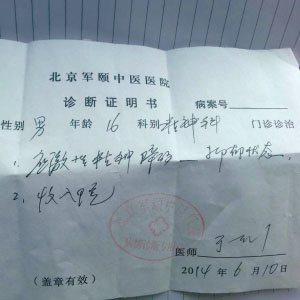 北京军颐中医医院
诊断证明书 病案号
性别 男 年龄 16 科别 精神科 门诊诊治
1. 应激性精神障碍 抑郁状态
2. 收入
医师
2014年6月10日
(盖章有效)